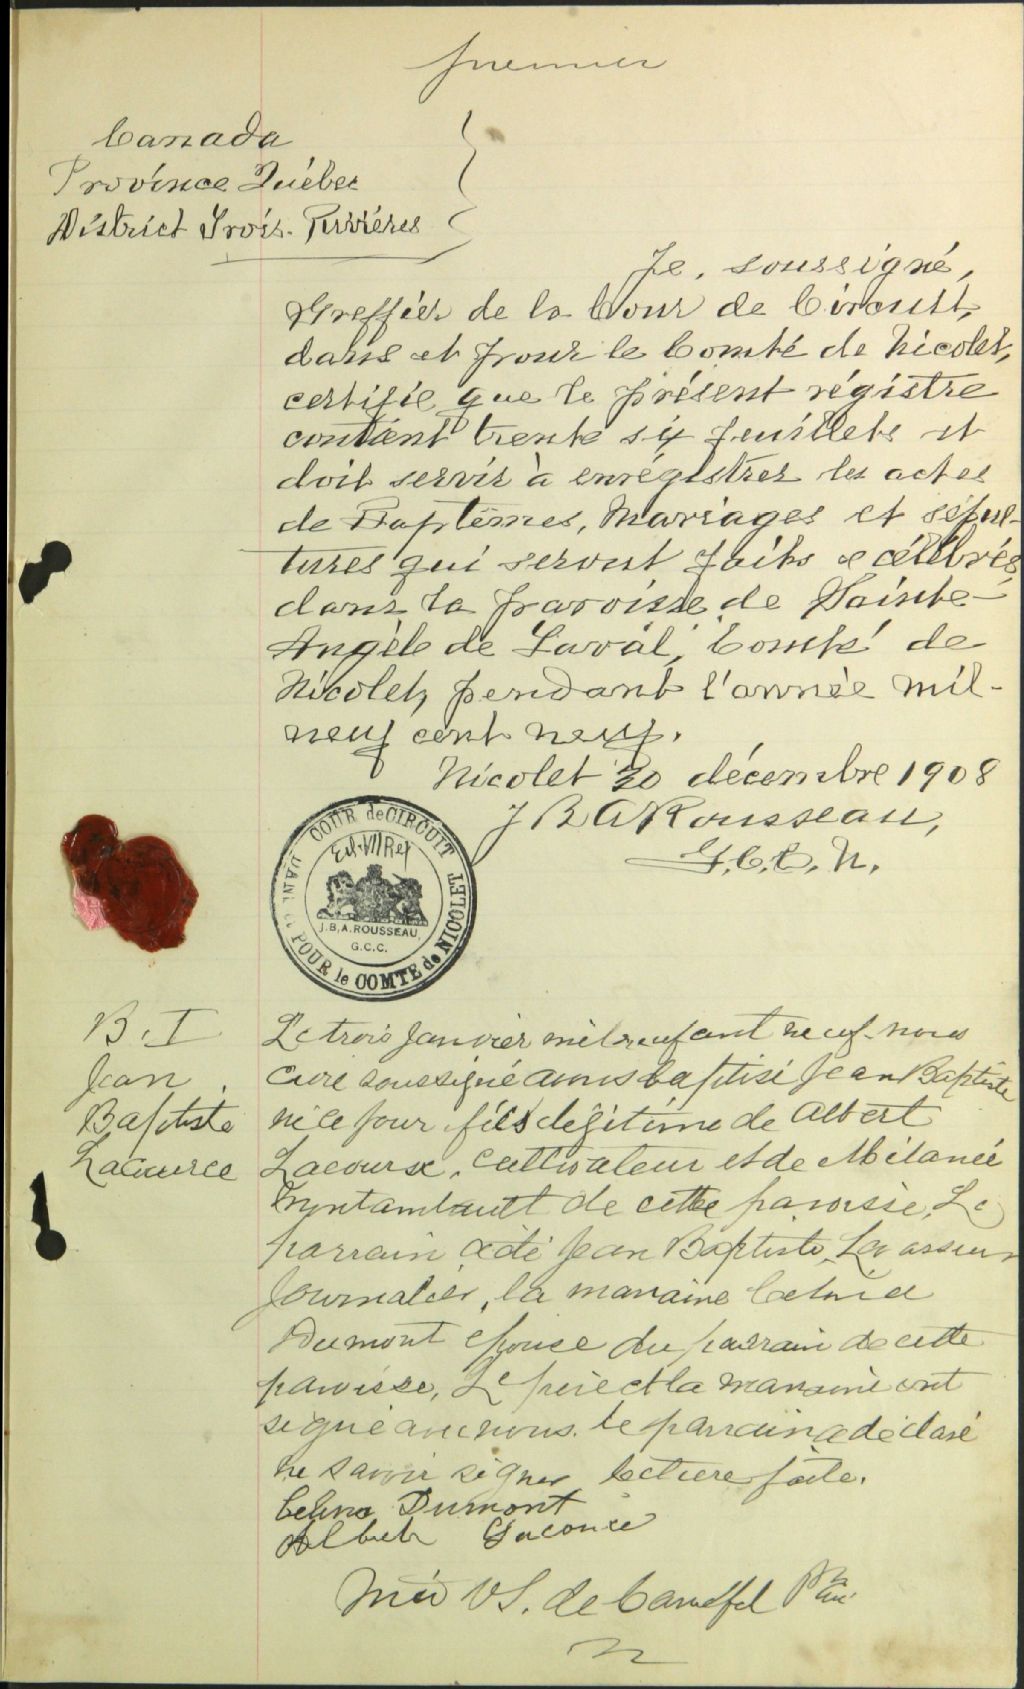 premier
Canada
Province Québec
District Trois-Rivières
Je, soussigné,
Greffier de la Cour de Circuit,
dans et pour le Comté de Nicolet,
certifie que le présent régistre
contient trente six feuillets et
doit servir à enrégistrer les actes
de Baptêmes, Mariages et sépul-
tures qui seront faits et célébrés
dans la paroisse de Sainte-
Angèle de Laval, Comté de
Nicolet, pendant l'année mil-
neuf cent neuf.
Nicolet 30 décembre 1908
J B A Rousseau,
G.C.C. N.
COUR de CIRCUIT
DANS et POUR le COMTE de NICOLET
Ed. VII Rex
J.B.A. ROUSSEAU,
G.C.C.
B. I
Jean
Baptiste
Lacource
Le trois Janvier mil neuf cent neuf nous
curé soussigné avons baptisé Jean Baptiste
né ce jour fils légitime de Albert
Lacourse, cultivateur et de Mélanie
Montambault de cette paroisse, Le
parrain a été Jean Baptiste Levasseur
Journalier, la marraine Celina
Dumont épouse du parrain de cette
paroisse, Le père et la marraine ont
signé avec nous. le parrain a déclaré
ne savoir signer lecture faite.
Celina Dumont
Albert Lacource
V S. de Carufel Ptre